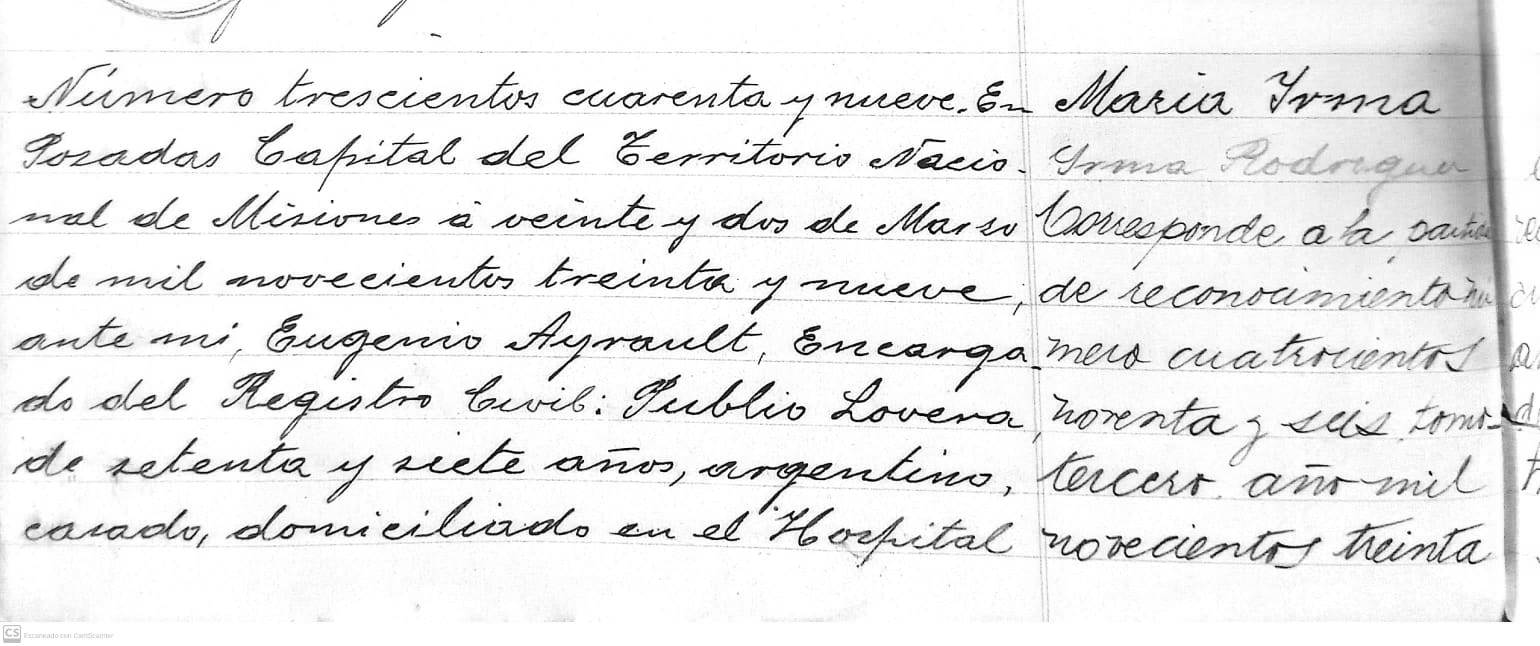 Número trescientos cuarenta y nueve. En
Posadas Capital del Territorio Nacio-
nal de Misiones á veinte y dos de Marzo
de mil novecientos treinta y nueve,
ante mi, Eugenio Ayrault, Encarga-
do del Registro Civil: Publio Lovera,
de setenta y siete años, argentino,
casado, domiciliado en el Hospital
Maria Irma
Irma Rodriguez
Corresponde a la partida
de reconocimiento nú
mero cuatrocientos
noventa y seis tomo-
tercero año mil
novecientos treinta
CS Escaneado con CamScanner